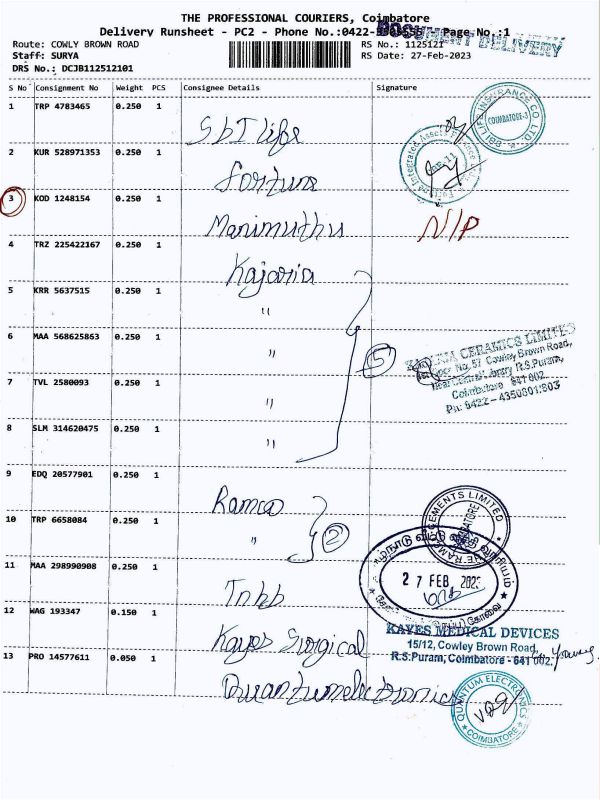 THE PROFESSIONAL COURIERS, Coimbatore
Delivery Runsheet - PC2 - Phone No.:0422- Page No.:1
DOCUMENT DELIVERY
Route: COWLY BROWN ROAD
RS No.: 1125121
Staff: SURYA
RS Date: 27-Feb-2023
DRS No.: DCJB112512101
S No Consignment No Weight PCS Consignee Details Signature
1 TRP 4783465 0.250 1 SbI life
SBI LIFE INSURANCE CO. LTD.
COIMBATORE-3
2 KUR 528971353 0.250 1 fortune
3 KOD 1248154 0.250 1 Manimuthu N/P
4 TRZ 225422167 0.250 1 Kajaria
5 KRR 5637515 0.250 1 "
6 MAA 568625863 0.250 1 "
5
KAJARIA CERAMICS LIMITED
Floor No. 57 Cowley Brown Road,
Near Central Library R.S.Puram,
Coimbatore 641 002.
7 TVL 2580093 0.250 1 "
8 SLM 314620475 0.250 1 "
9 EDQ 20577901 0.250 1 Ramco
10 TRP 6658084 0.250 1 "
2
11 MAA 298990908 0.250 1 Tnhb
தமிழ்நாடு வீட்டு வசதி வாரியம்
27 FEB 2023
12 WAG 193347 0.150 1 Kayes Surgical
KAYES MEDICAL DEVICES
15/12, Cowley Brown Road,
R.S.Puram, Coimbatore - 641 002.
13 PRO 14577611 0.050 1 Quantumelectronics
QUANTUM ELECTRONICS
COIMBATORE